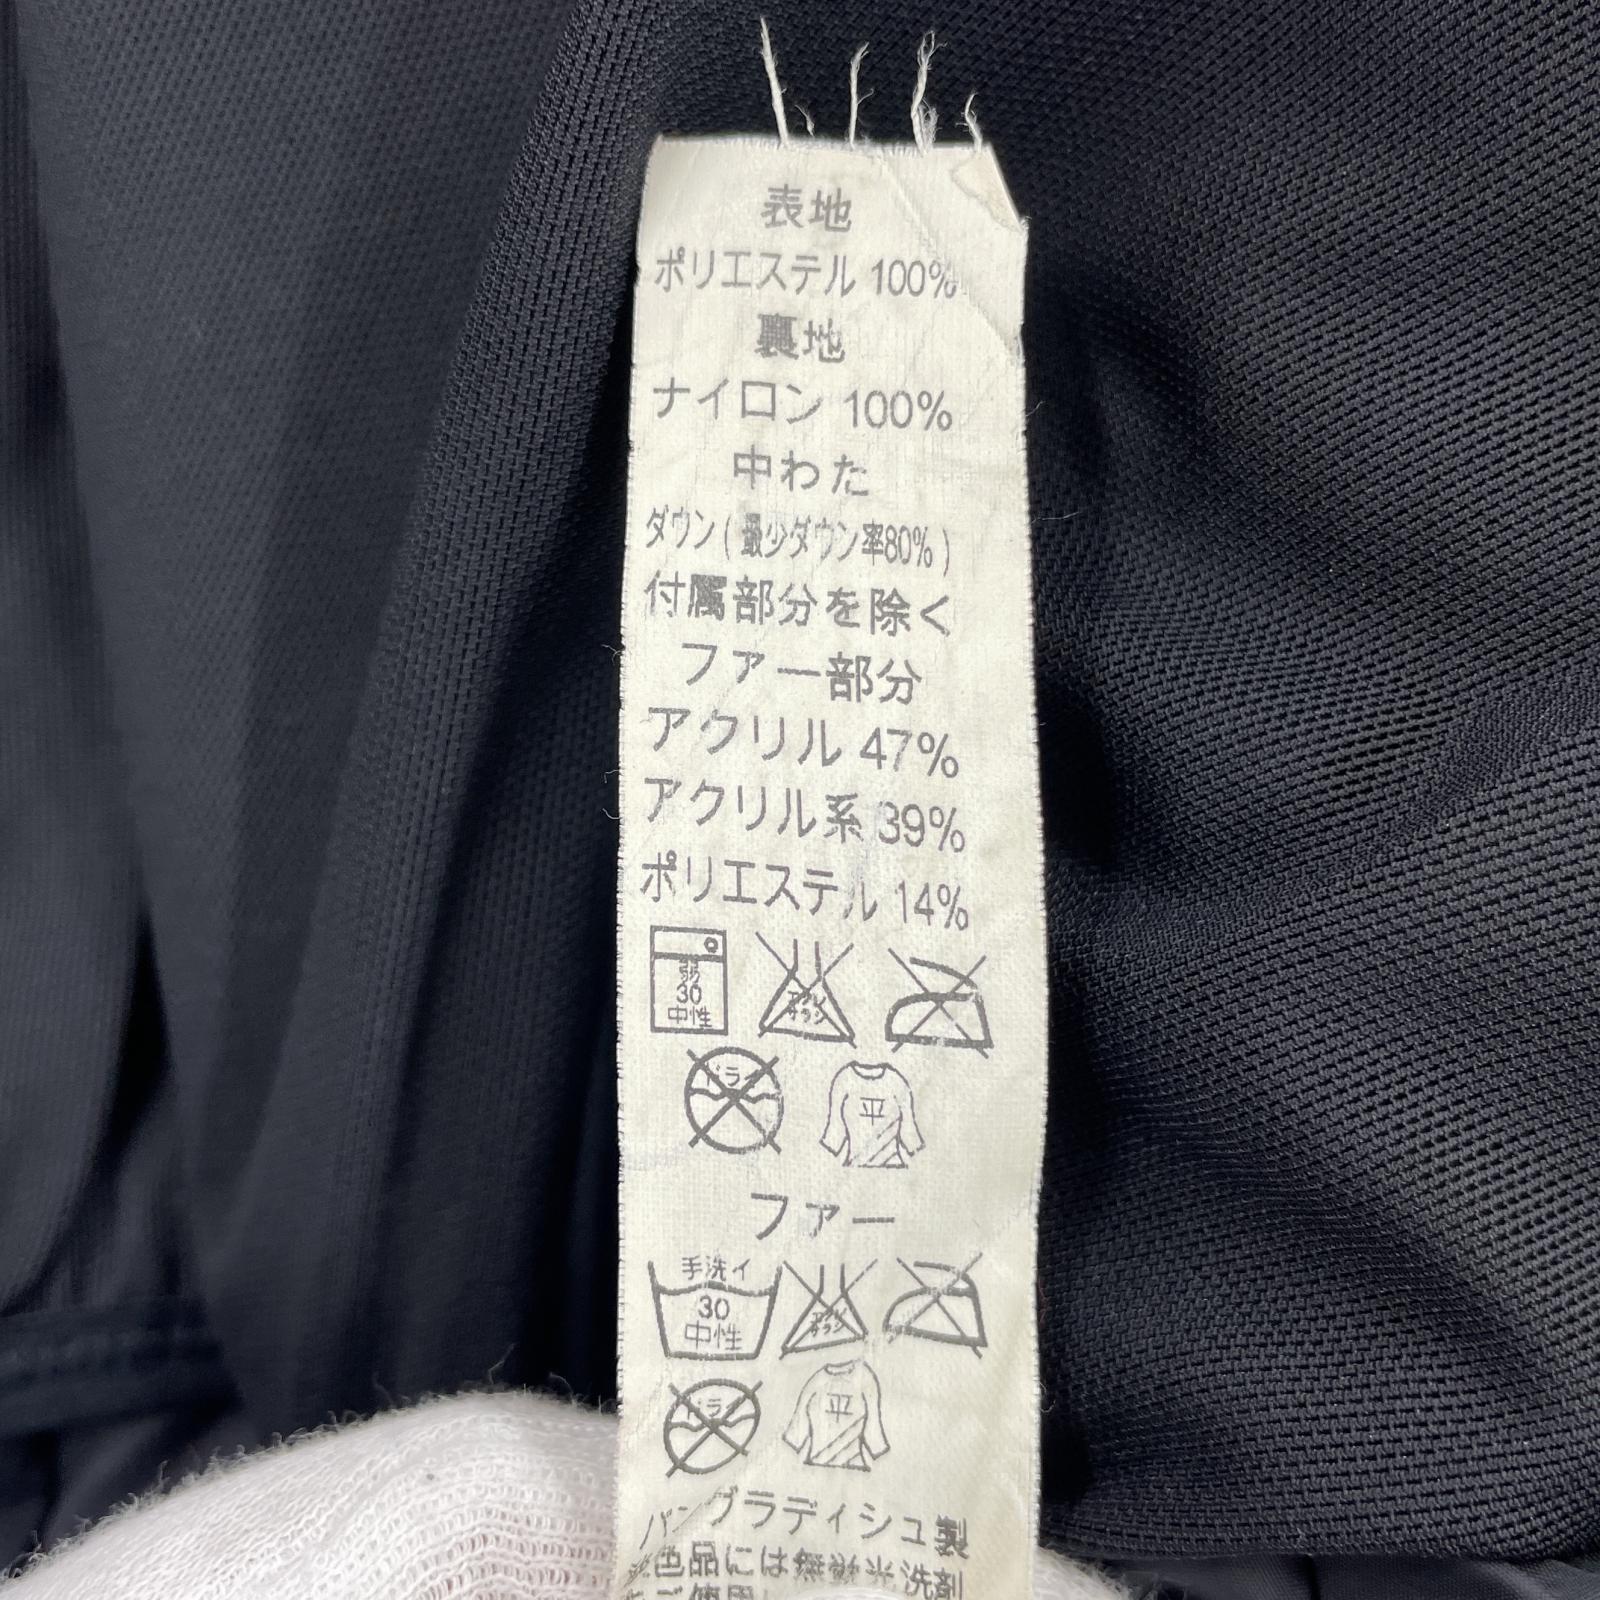 表地
ポリエステル 100%
裏地
ナイロン 100%
中わた
ダウン ( 最少ダウン率80% )
付属部分を除く
ファー部分
アクリル 47%
アクリル系 39%
ポリエステル 14%
弱
30
中性
エンソ
サラシ
ドライ
平
ファー
手洗イ
30
中性
エンソ
サラシ
ドライ
平
バングラディシュ製
色品には無蛍光洗剤
ご使用